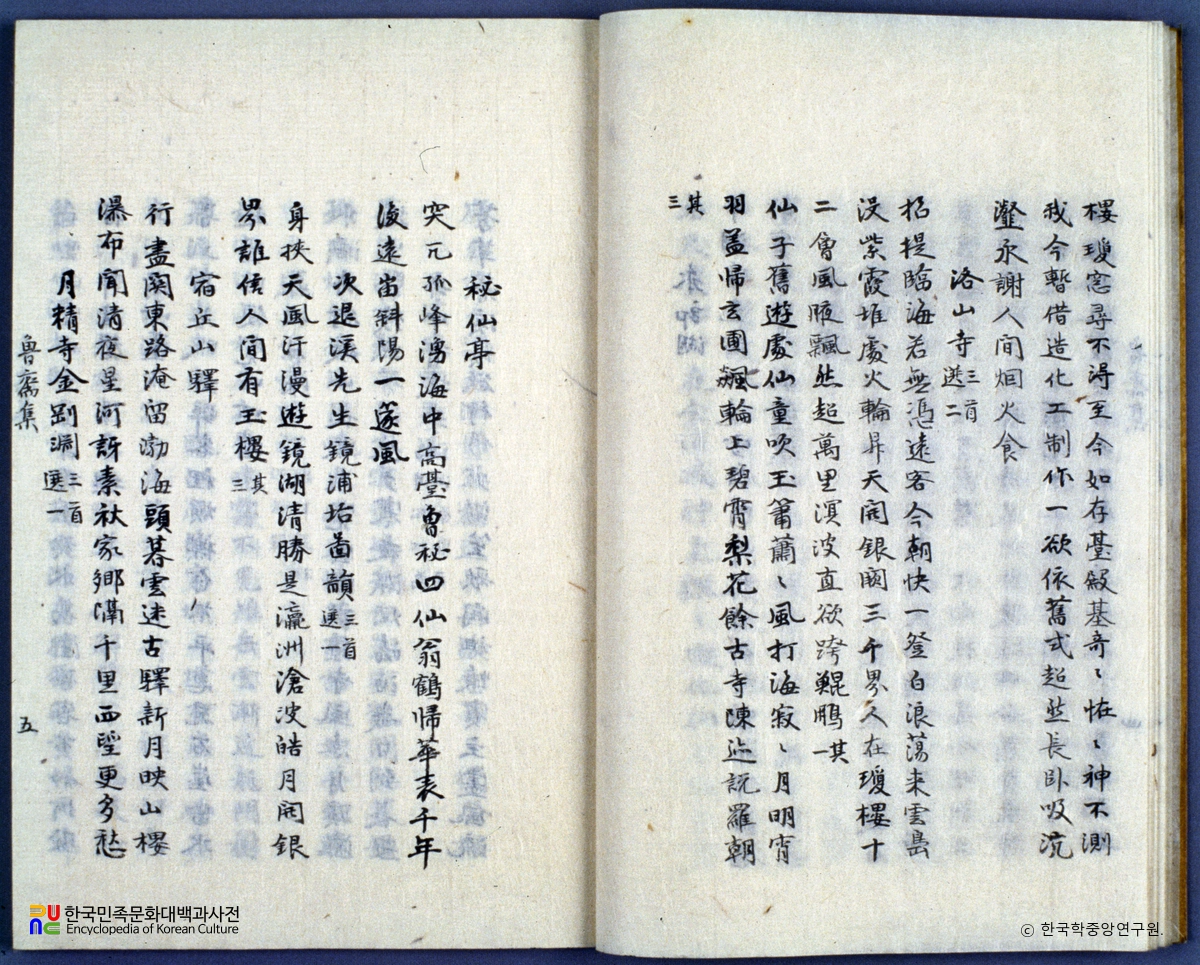 樓瓊窓尋不得至今如存臺殿基奇〻恠〻神不測
我今暫借造化工制作一欲依舊式超然長卧吸沆
瀣永謝人間烟火食
洛山寺三首選二
招提臨海若無憑遠客今朝快一登白浪蕩来雲島
没紫霞堆處火輪昇天開銀闕三千界人在瓊樓十
二曾風腋飄然超萬里溟波直欲跨鯤鵬其一
仙子舊遊處仙童吹玉簫蕭〻風打海寂〻月明宵
羽盖帰玄圃飆輪上碧霄梨花餘古寺陳迹説羅朝
其三
秘仙亭
突兀孤峰湧海中高臺曽秘四仙翁鶴帰華表千年
後遠岫斜陽一篴風
次退溪先生鏡浦坮韻三首選一
身挾天風汗漫遊鏡湖清勝是瀛洲滄波皓月開銀
界誰信人間有玉樓其三
宿丘山驛
行盡関東路淹留渤海頭暮雲迷古驛新月映山樓
瀑布聞清夜星河訝素秋家郷隔千里西望更多愁
月精寺金剛淵三首選一
魯齋集
五
한국민족문화대백과사전
Encyclopedia of Korean Culture
ⓒ 한국학중앙연구원.